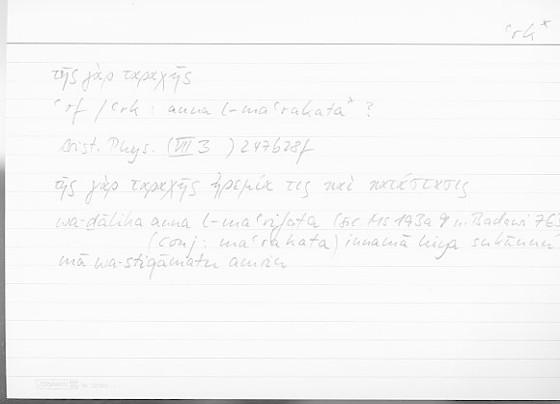 ʿrk*
τῆς γὰρ ταραχῆς
ʿrf / ʿrk : anna l-maʿrakata* ?
Arist. Phys. (VII 3) 247b28f
τῆς γὰρ ταραχῆς ἠρεμία τις καὶ κατάστασις
wa-ḏālika anna l-maʿrifata (sic Ms 193a 9 u. Badawi 763
(conj: maʿrakata) innamā hiya sukūnun
mā wa-stiqāmatu